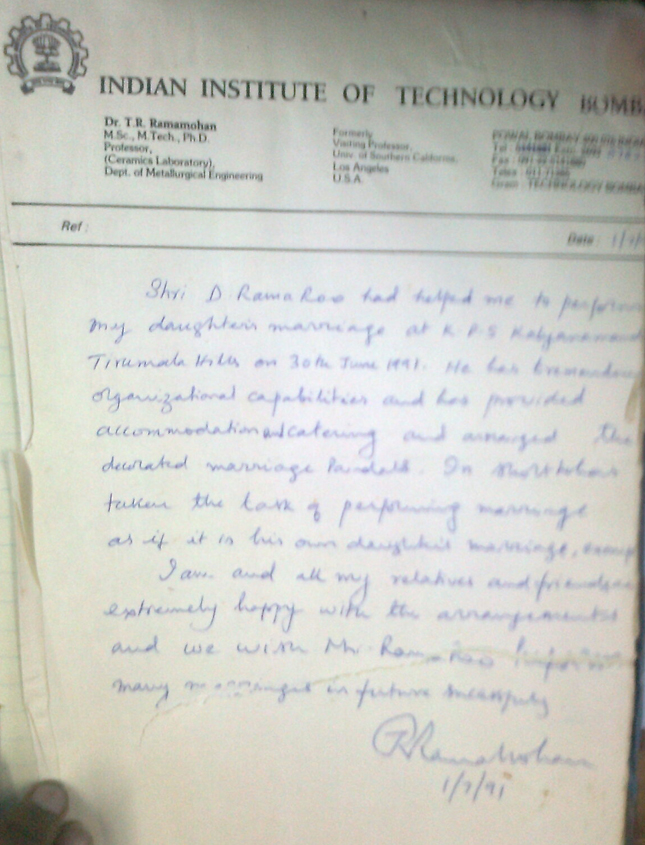 INDIAN INSTITUTE OF TECHNOLOGY BOMB
Dr. T.R. Ramamohan
M.Sc., M.Tech., Ph.D.
Professor,
(Ceramics Laboratory),
Dept. of Metallurgical Engineering
Formerly
Visiting Professor,
Univ. of Southern California.
Los Angeles
U.S.A.
POWAI, BOMBAY
TECHNOLOGY BOMBA
Ref :
Date :
Shri D. Rama Rao had helped me to perform
my daughter's marriage at K.P.S
Tirumala Hills on 30th June 1991. He has
organizational capabilities and has provided
accommodation and catering and arranged the
decorated marriage Pandals. In
taken the task of performing marriage
as if it is his own daughter's marriage,
I am and all my relatives and friends
extremely happy with the arrangements
and we wish Mr. Rama Rao
many marriages in future
Ramamohan
1/7/91